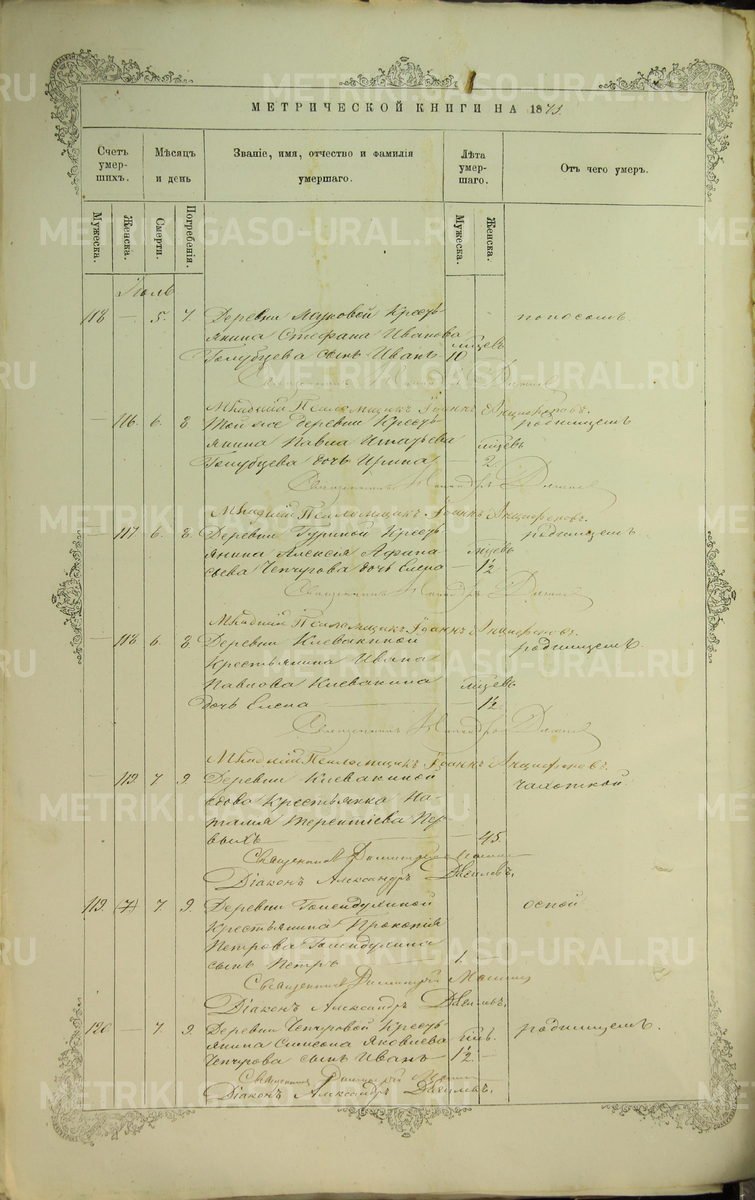 METRIKI.GASO-URAL.RU
МЕТРИЧЕСКОЙ КНИГИ НА 1873.
Счетъ умершихъ.
Мѣсяцъ и день
Званіе, имя, отчество и фамилія умершаго.
Лѣта умершаго.
Отъ чего умеръ.
Мужеска.
Женска.
Смерти.
Погребенія.
Мужеска.
Женска.
Іюль
118 — 5. 7. Деревни Крестьянина Стефана Иванова Голубцева сынъ Иванъ 10 мцевъ поносомъ.
Священникъ
Младшій Псаломщикъ Іоаннъ Анциферовъ.
— 116. 6. 8. Той же деревни Крестьянина Павла Игнатьева Голубцева дочь Ирина — 2. мцевъ родимцемъ
Священникъ
Младшій Псаломщикъ Іоаннъ Анциферовъ.
— 117 6. 8. Деревни Гуриной Крестьянина Алексія Афанасьева Чепчугова дочь Елена — 1½ мцевъ родимцемъ
Священникъ
Младшій Псаломщикъ Іоаннъ Анциферовъ.
— 118 6. 8. Деревни Клевакиной Крестьянина Ивана Павлова Клевакина дочь Елена — 1½ мцевъ родимцемъ.
Священникъ
Младшій Псаломщикъ Іоаннъ Анциферовъ.
— 119. 7. 9. Деревни Клевакиной вдова Крестьянка Наталія Терентіева Первыхъ — 45. чахоткой.
Священникъ Димитрій
Діаконъ Александръ
119. 7. 9. Деревни Голендухиной Крестьянина Прокопія Петрова Голендухина сынъ Петръ 1. — оспой
Священникъ Димитрій
Діаконъ Александръ
120 — 7. 9. Деревни Чепчуговой Крестьянина Симеона Яковлева Чепчугова сынъ Иванъ 1½ — родимцемъ.
Священникъ Димитрій
Діаконъ Александръ